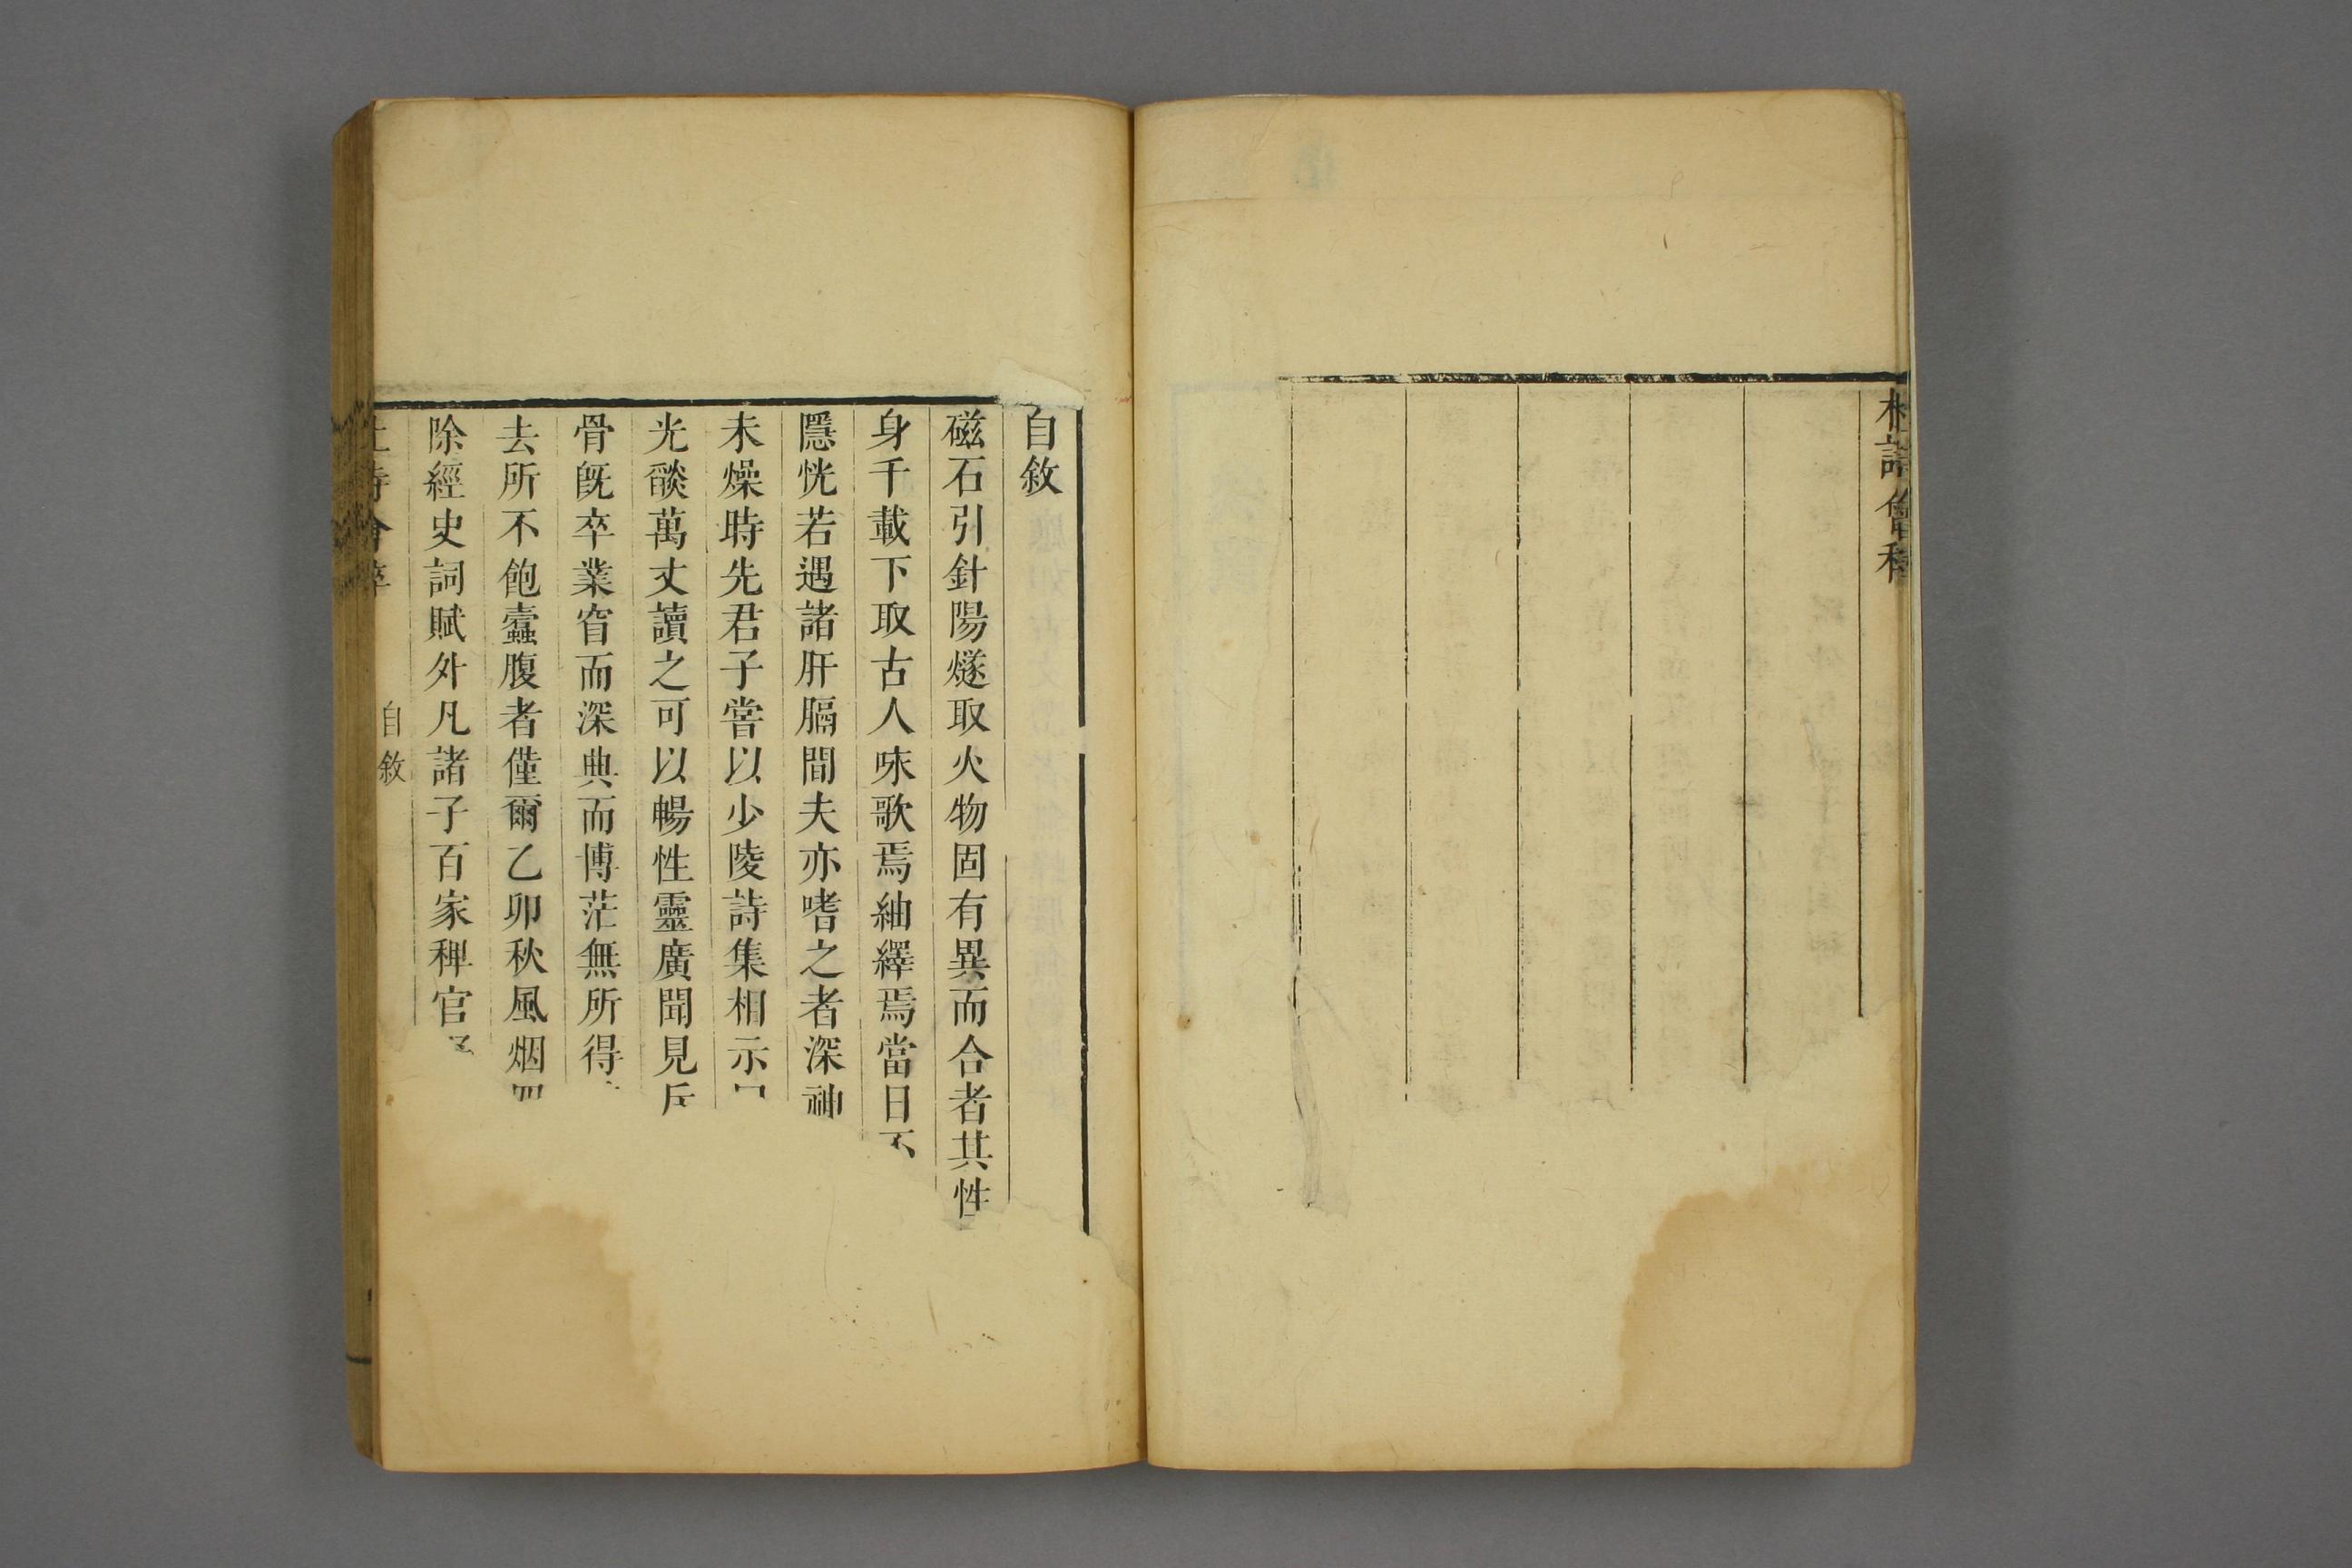 杜詩會稡
自敘
磁石引針陽燧取火物固有異而合者其性
身千載下取古人咏歌焉紬繹焉當日不
隱恍若遇諸肝膈間夫亦嗜之者深神
未燥時先君子嘗以少陵詩集相示曰
光燄萬丈讀之可以暢性靈廣聞見斥
骨旣卒業窅而深典而博茫無所得
去所不飽蠹腹者僅爾乙卯秋風烟四
除經史詞賦外凡諸子百家稗官
杜詩會稡
自敘